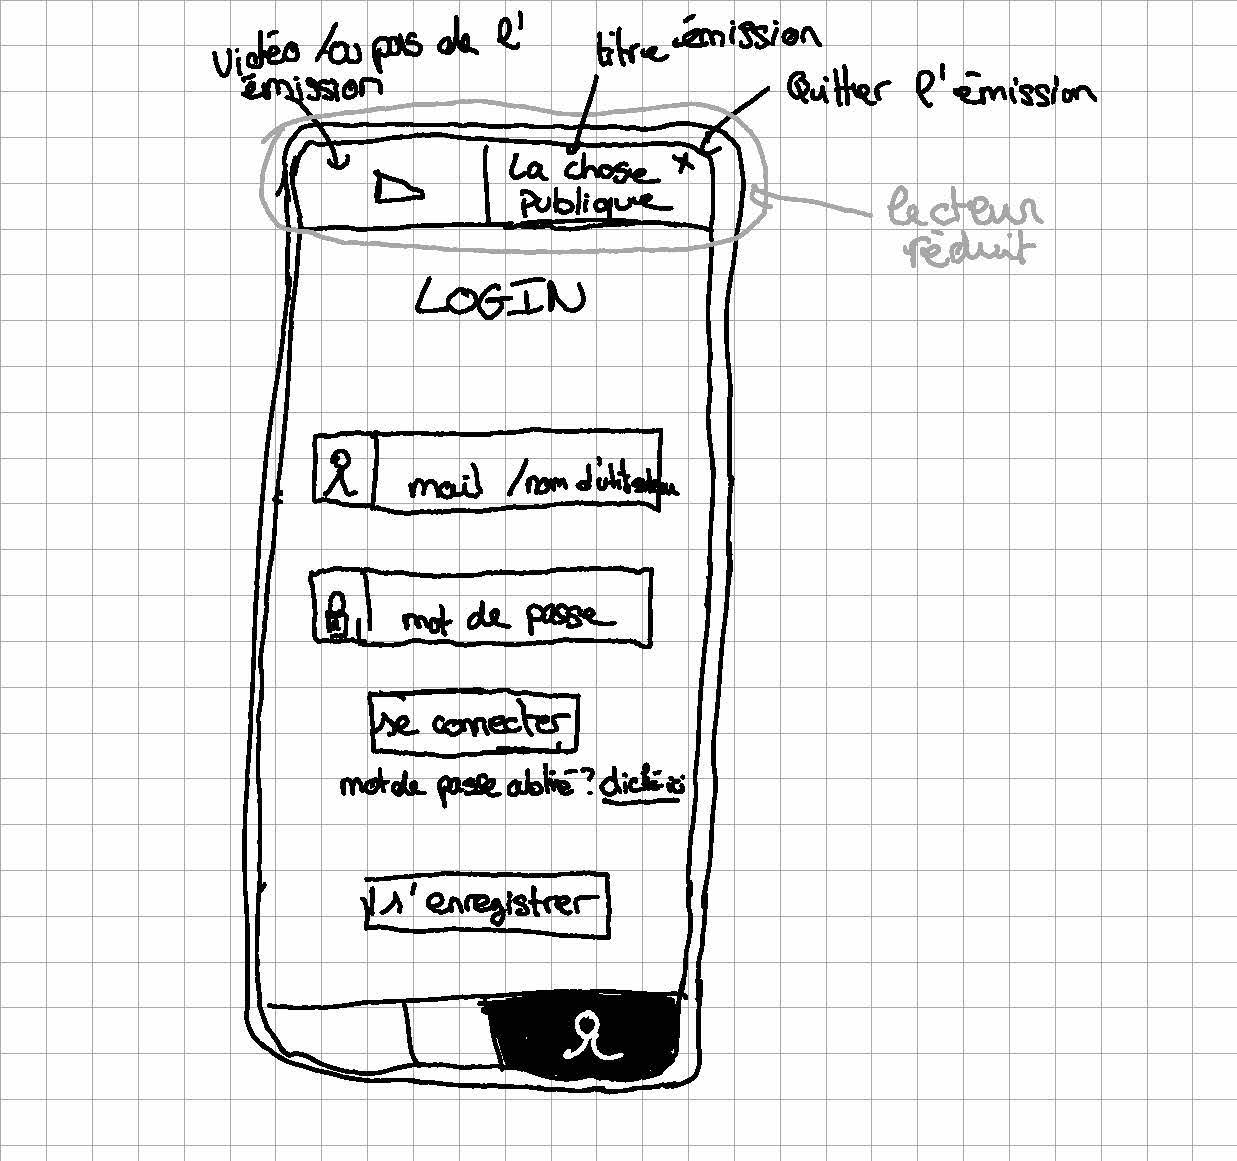 vidéo /ou pas de l'
émission
titre émission
Quitter l'émission
La chose
Publique
x
lecteur
réduit
LOGIN
mail /nom d'utilisateur
mot de passe
se connecter
mot de passe oublié? clické ici
s'enregistrer